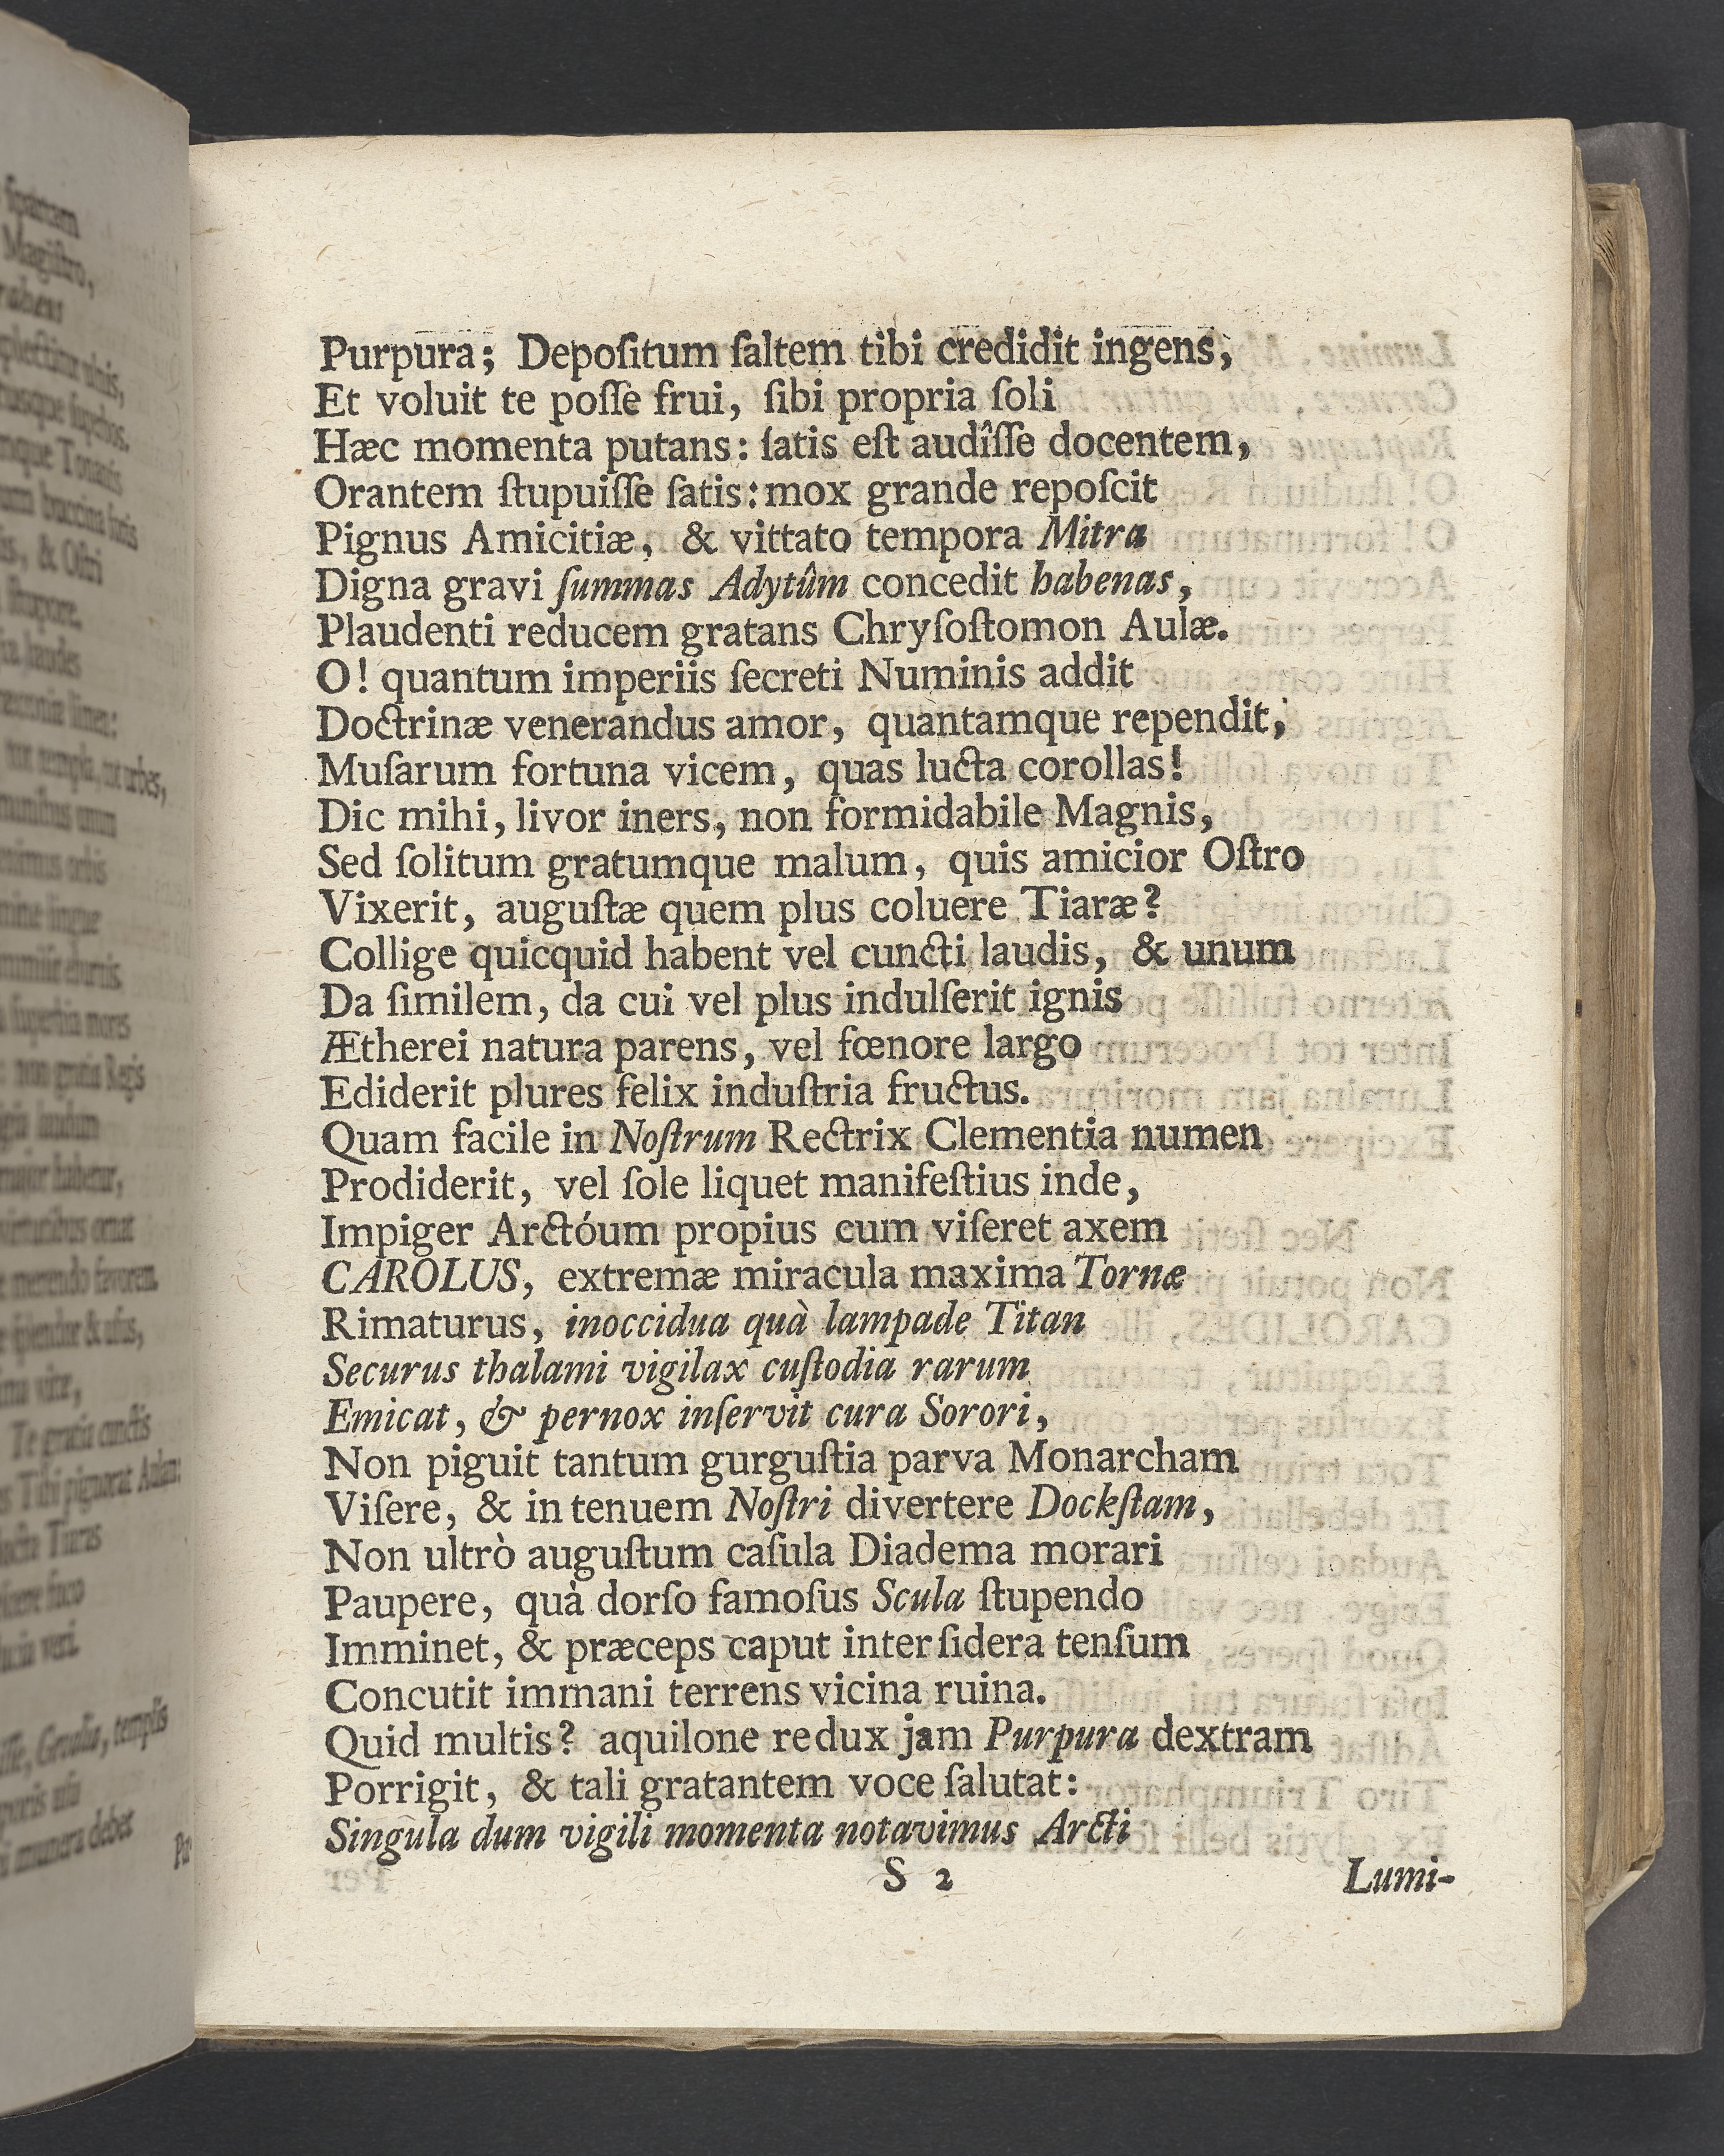 Purpura; Depoſitum ſaltem tibi credidit ingens,
Et voluit te poſſe frui, ſibi propria ſoli
Hæc momenta putans: ſatis eſt audîſſe docentem,
Orantem ſtupuiſſe ſatis: mox grande repoſcit
Pignus Amicitiæ, & vittato tempora Mitra
Digna gravi ſummas Adytûm concedit habenas,
Plaudenti reducem gratans Chryſoſtomon Aulæ.
O! quantum imperiis ſecreti Numinis addit
Doctrinæ venerandus amor, quantamque rependit,
Muſarum fortuna vicem, quas lucta corollas!
Dic mihi, livor iners, non formidabile Magnis,
Sed ſolitum gratumque malum, quis amicior Oſtro
Vixerit, auguſtæ quem plus coluere Tiaræ?
Collige quicquid habent vel cuncti laudis, & unum
Da ſimilem, da cui vel plus indulſerit ignis
Ætherei natura parens, vel fœnore largo
Ediderit plures felix induſtria fructus.
Quam facile in Noſtrum Rectrix Clementia numen
Prodiderit, vel ſole liquet manifeſtius inde,
Impiger Arctóum propius cum viſeret axem
CAROLUS, extremæ miracula maxima Tornæ
Rimaturus, inoccidua quà lampade Titan
Securus thalami vigilax cuſtodia rarum
Emicat, & pernox inſervit cura Sorori,
Non piguit tantum gurguſtia parva Monarcham
Viſere, & in tenuem Noſtri divertere Dockſtam,
Non ultrò auguſtum caſula Diadema morari
Paupere, quà dorſo famoſus Scula ſtupendo
Imminet, & præceps caput inter ſidera tenſum
Concutit immani terrens vicina ruina.
Quid multis? aquilone redux jam Purpura dextram
Porrigit, & tali gratantem voce ſalutat:
Singula dum vigili momenta notavimus Arcti
S 2
Lumi-